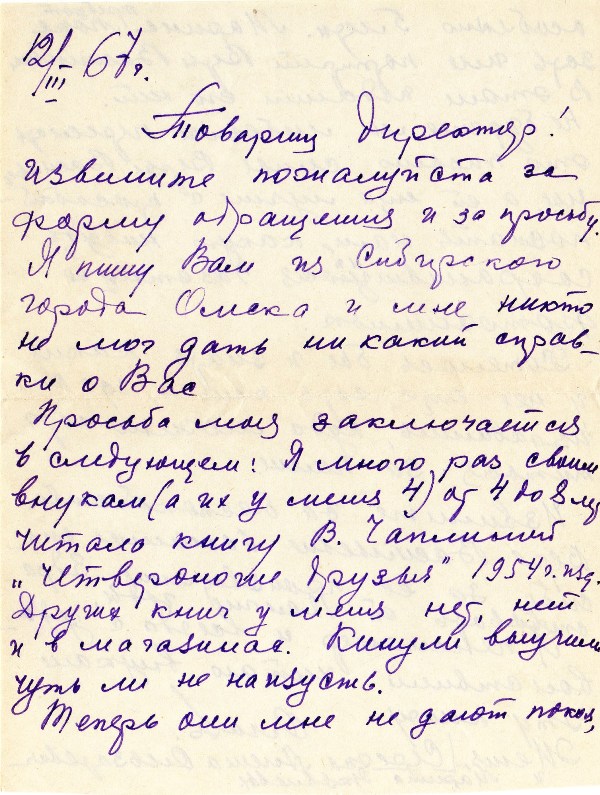 12/III-67г.
Товарищ директор!
Извините пожалуйста за
форму обращения и за просьбу.
Я пишу Вам из Сибирского
города Омска и мне никто
не мог дать ни какий справ-
ки о Вас
Просьба моя заключается
в следующем: Я много раз своим
внукам (а их у меня 4) от 4 до 8 лет
читала книгу В. Чаплиной
„Четвероногие друзья" 1954г. изд.
Других книг у меня нет, нет
и в магазинах. Кинули выучили
чуть ли не наизусть.
Теперь они мне не дают покоя,